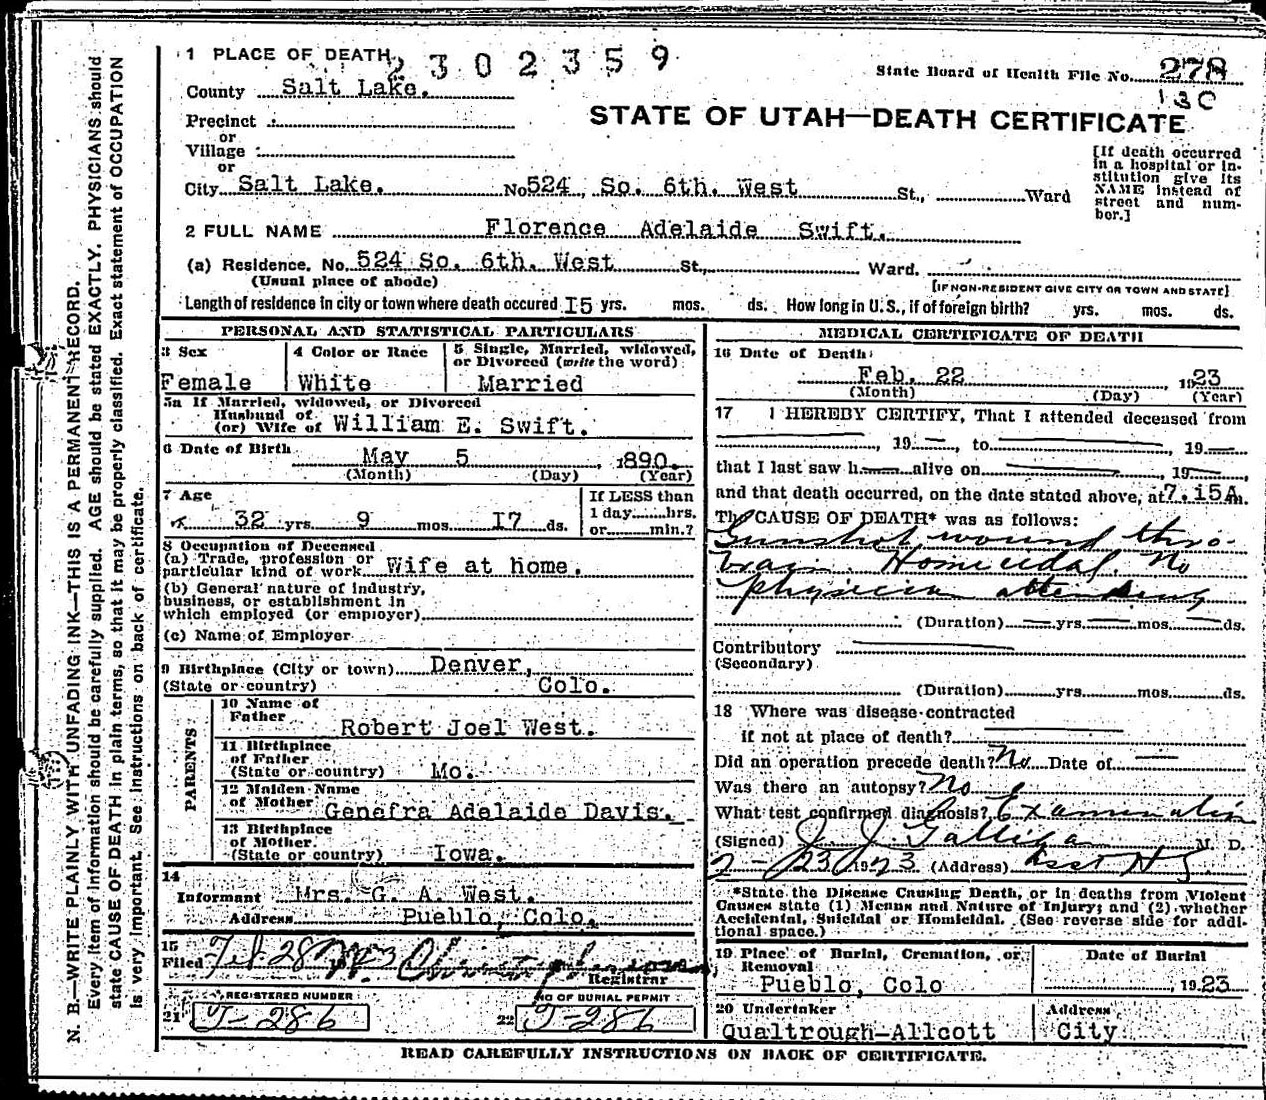 1 PLACE OF DEATH
2302359
State Board of Health File No. 278
130
County Salt Lake.
STATE OF UTAH—DEATH CERTIFICATE
Precinct
or
Village
or
City Salt Lake. No. 524 So. 6th. West St., Ward
[If death occurred
in a hospital or in-
stitution give its
NAME instead of
street and num-
ber.]
2 FULL NAME Florence Adelaide Swift.
(a) Residence. No. 524 So. 6th. West St., Ward.
(Usual place of abode)
[IF NON-RESIDENT GIVE CITY OR TOWN AND STATE]
Length of residence in city or town where death occured I5 yrs. mos. ds. How long in U.S., if of foreign birth? yrs. mos. ds.
PERSONAL AND STATISTICAL PARTICULARS
3 Sex
Female
4 Color or Race
White
5 Single, Married, widowed,
or Divorced (write the word)
Married
5a If Married, widowed, or Divorced
Husband of
(or) Wife of William E. Swift.
6 Date of Birth
May 5, 1890.
(Month) (Day) (Year)
7 Age
32 yrs. 9 mos. I7 ds.
If LESS than
1 day......hrs.
or......min.?
8 Occupation of Deceased
(a) Trade, profession or
particular kind of work Wife at home.
(b) General nature of industry,
business, or establishment in
which employed (or employer)
(c) Name of Employer
9 Birthplace (City or town) Denver,
(State or country) Colo.
PARENTS
10 Name of
Father
Robert Joel West.
11 Birthplace
of Father
(State or country) Mo.
12 Maiden Name
of Mother
Genefra Adelaide Davis.
13 Birthplace
of Mother.
(State or country) Iowa.
14
Informant Mrs. G. A. West.
Address Pueblo, Colo.
15
Filed Feb 28
Registrar
REGISTERED NUMBER
21 J-286
NO OF BURIAL PERMIT
22 J-286
MEDICAL CERTIFICATE OF DEATH
16 Date of Death
Feb. 22, 1923
(Month) (Day) (Year)
17 I HEREBY CERTIFY, That I attended deceased from
, 19—, to , 19—
that I last saw h— alive on , 19—
and that death occurred, on the date stated above, at 7.i5A m.
The CAUSE OF DEATH* was as follows:
Gunshot wound thro-
brain Homicidal. No
physician attending
(Duration) — yrs. — mos. — ds.
Contributory
(Secondary)
(Duration) yrs. mos. ds.
18 Where was disease contracted
if not at place of death?
Did an operation precede death? No Date of —
Was there an autopsy? No
What test confirmed diagnosis? Examination
(Signed) J J Galligan M. D.
2-23 1923 (Address) Asst H
*State the Disease Causing Death, or in deaths from Violent
Causes state (1) Means and Nature of Injury; and (2) whether
Accidental, Suicidal or Homicidal. (See reverse side for addi-
tional space.)
19 Place of Burial, Cremation, or
Removal
Pueblo, Colo
Date of Burial
, 1923
20 Undertaker
Qualtrough-Allcott
Address
City
READ CAREFULLY INSTRUCTIONS ON BACK OF CERTIFICATE.
N. B.—WRITE PLAINLY WITH UNFADING INK—THIS IS A PERMANENT RECORD.
Every item of information should be carefully supplied. AGE should be stated EXACTLY. PHYSICIANS should
state CAUSE OF DEATH in plain terms, so that it may be properly classified. Exact statement of OCCUPATION
is very important. See instructions on back of certificate.